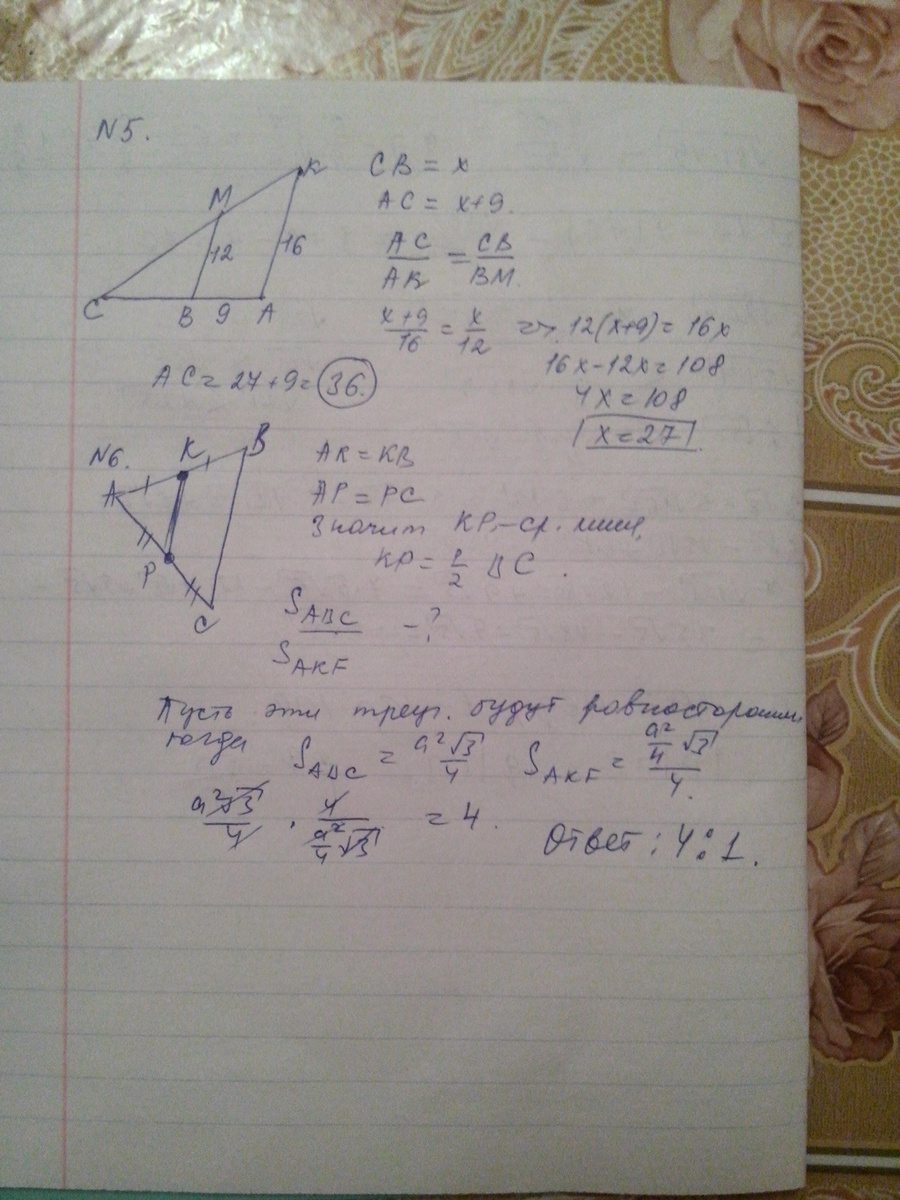 N5.
K
M
12
16
C B 9 A
CB = x
AC = x+9.
AC/AK = CB/BM.
x+9/16 = x/12 => 12(x+9) = 16x
16x-12x=108
4x=108
x=27
AC=27+9=36.
N6.
A K B
P
C
AK=KB
AP=PC
Значит KP-ср. линия,
KP=1/2 BC.
S ABC / S AKF -?
Пусть эти треуг. будут равносторонними
тогда S ABC = a²√3/4 S AKF = a²/4 √3/4.
a²√3/4 · 4/a²/4 √3 = 4.
Ответ: 4:1.